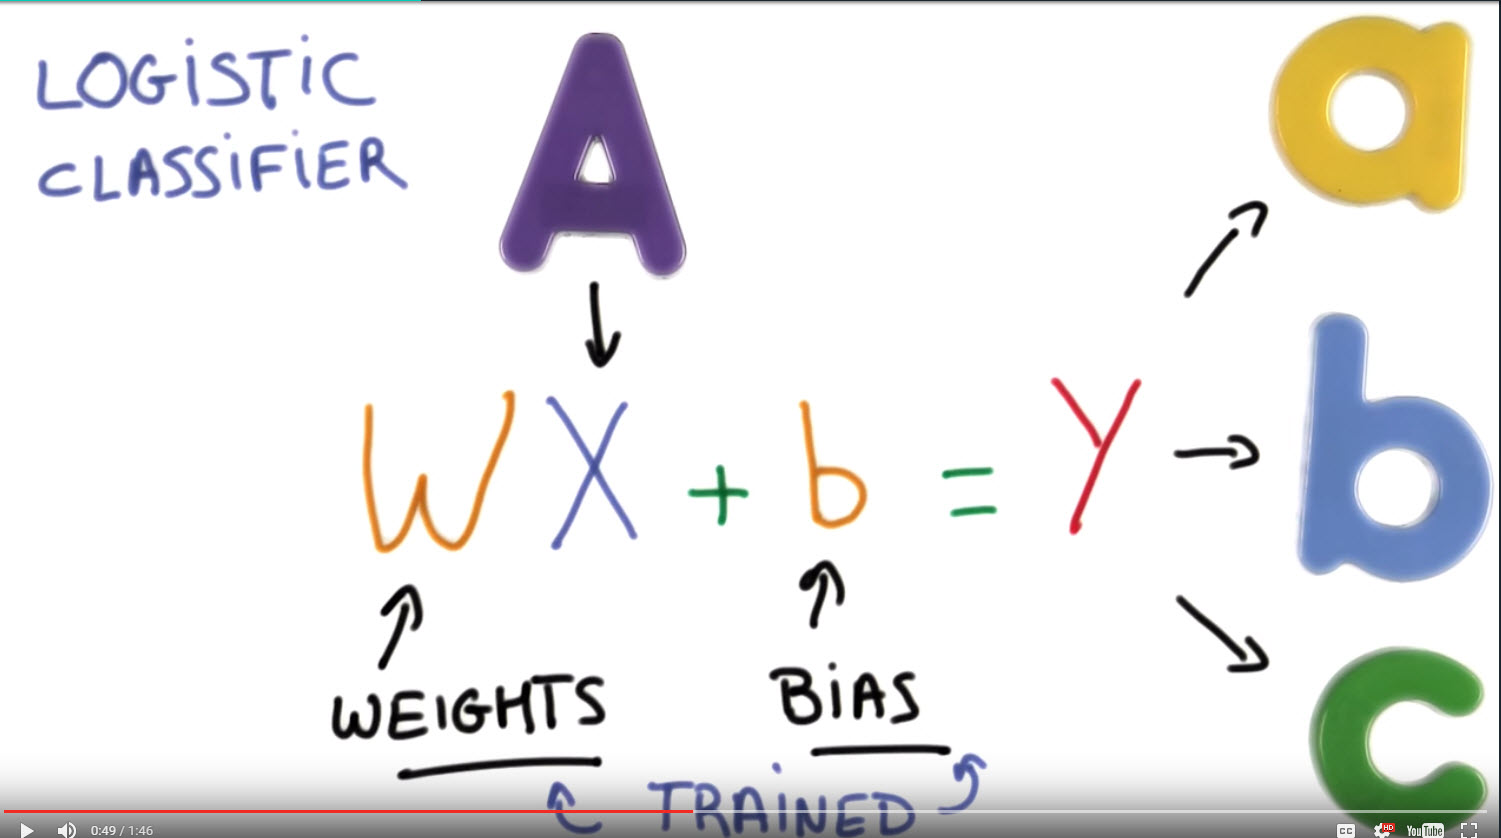 LOGISTIC
CLASSIFIER
A
a
WX + b = Y
b
WEIGHTS
BIAS
c
TRAINED
0:49 / 1:46
CC
HD
YouTube